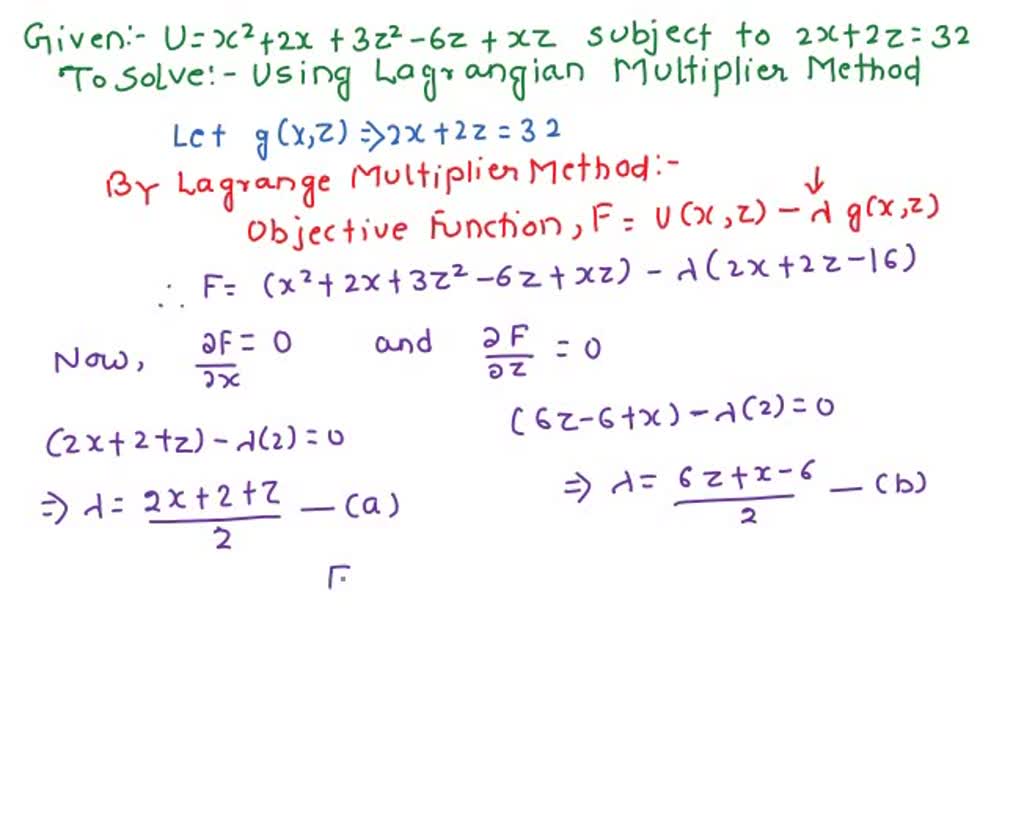 Given:- U=x²+2x+3z²-6z+xz subject to 2x+2z=32
To Solve:- Using Lagrangian Multiplier Method
Let g(x,z)⇒2x+2z=32
By Lagrange Multiplier Method:-
Objective Function, F= U(x,z)-λ g(x,z)
↓
∴ F= (x²+2x+3z²-6z+xz)-λ(2x+2z-16)
Now, ∂F/∂x=0 and ∂F/∂z=0
(2x+2+z)-λ(2)=0 (6z-6+x)-λ(2)=0
⇒ λ= (2x+2+z)/2 —(a) ⇒ λ= (6z+x-6)/2 —(b)